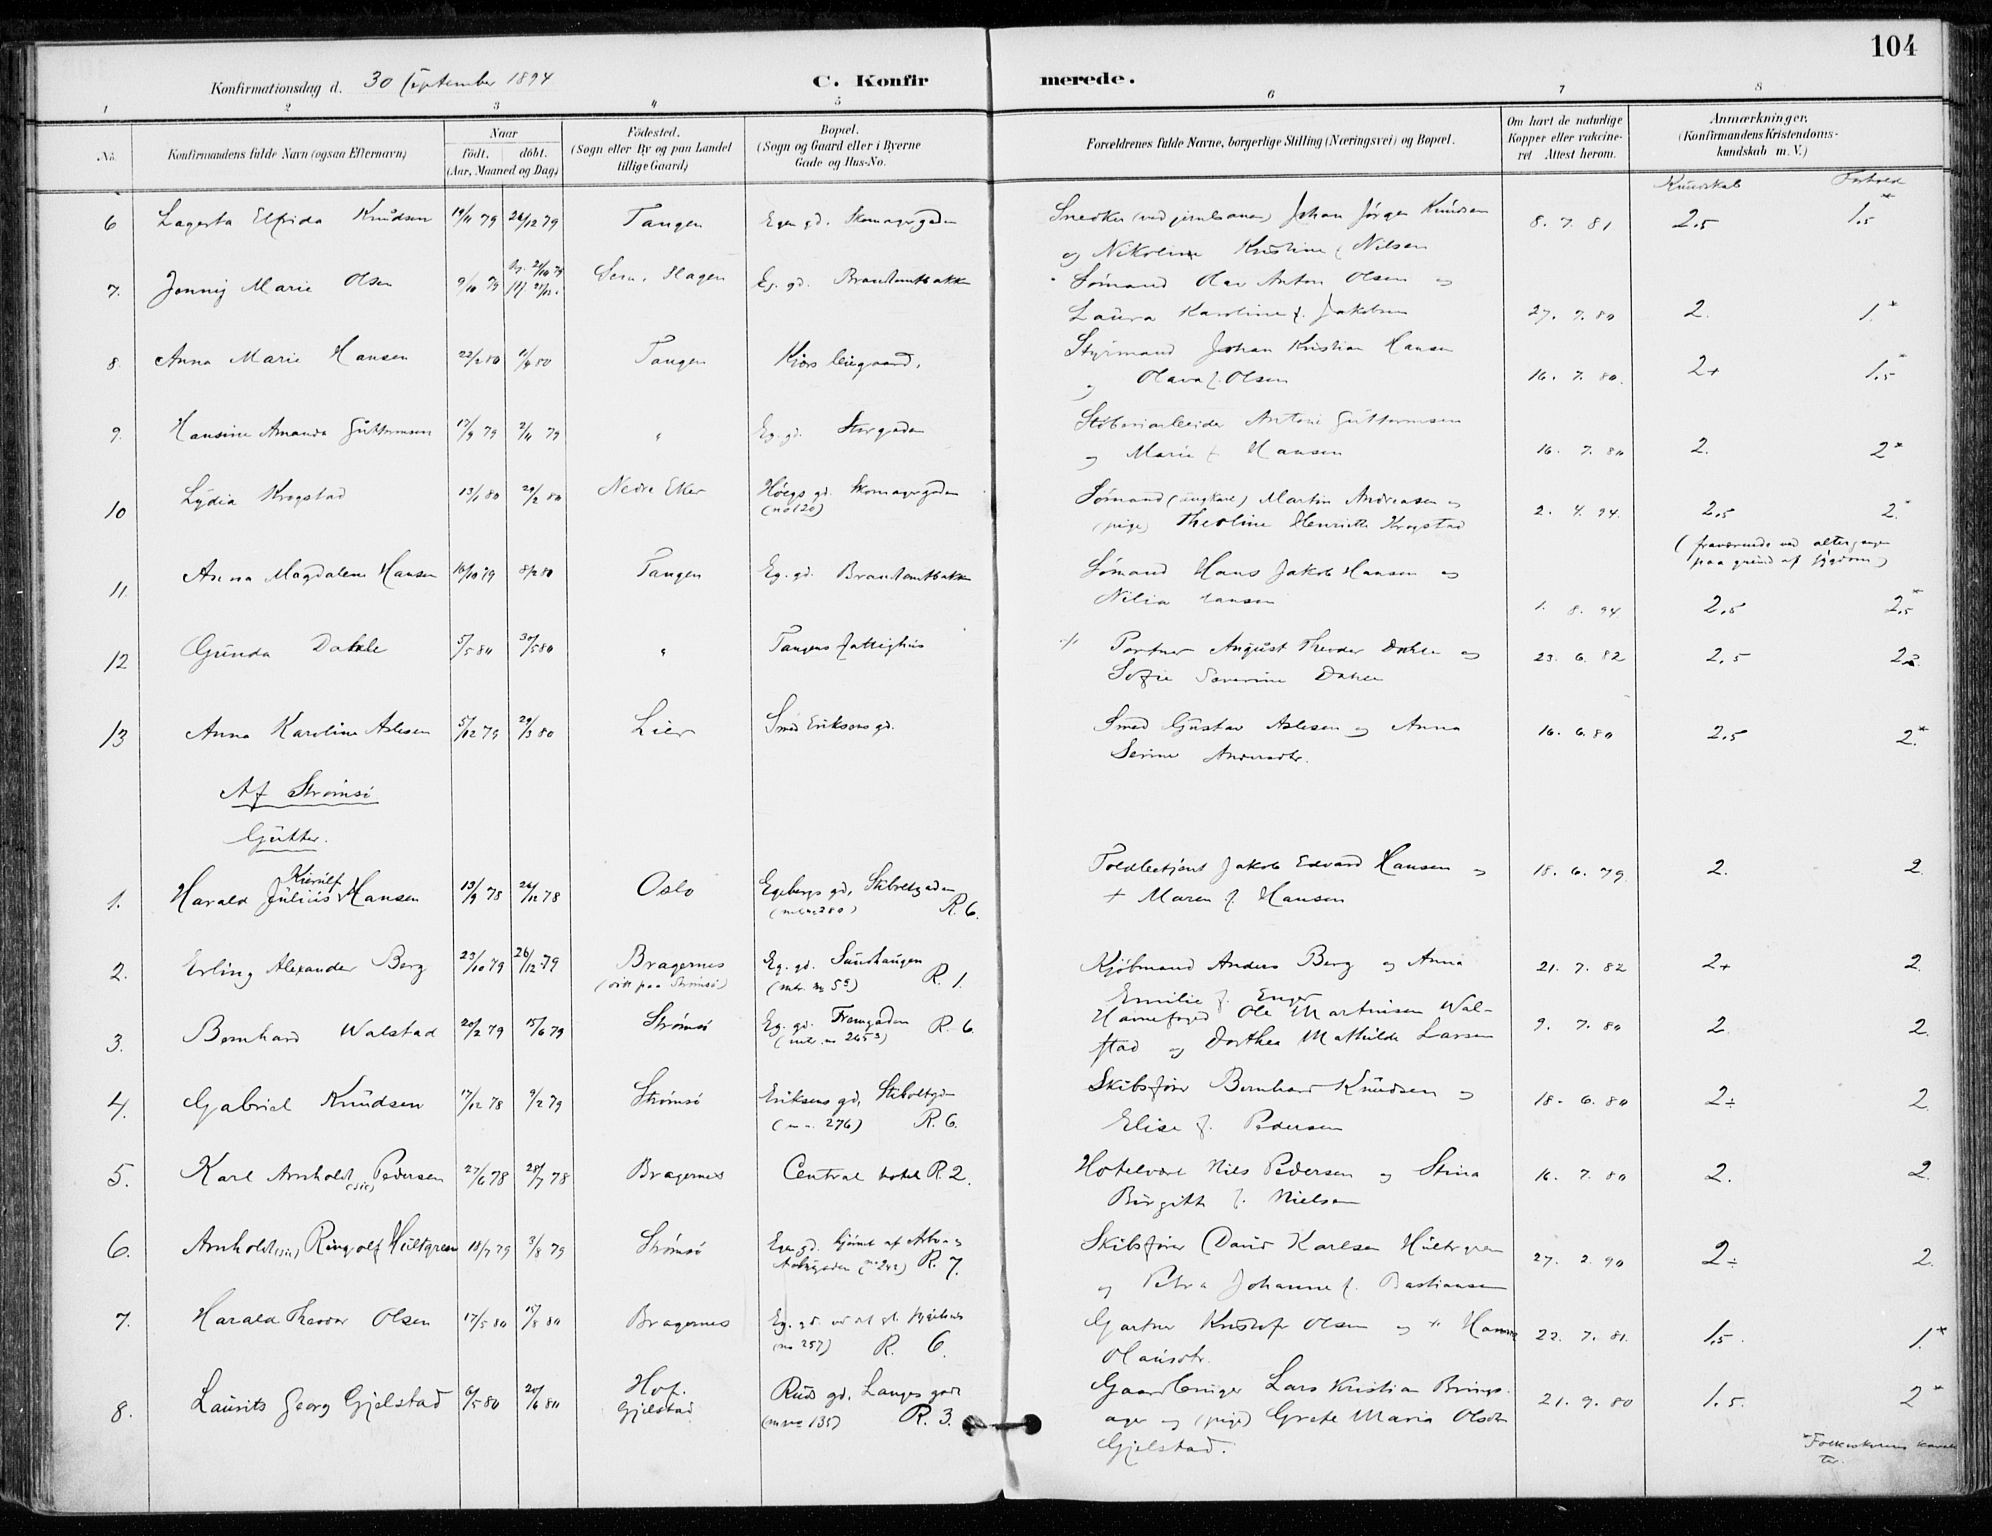 104
Konfirmationsdag d. 30 September 1894 C. Konfirmerede.
1 2 3 4 5 6 7 8
No. Konfirmandens fulde Navn (ogsaa Efternavn) Naar Født. døbt. (Aar, Maaned og Dag) Fødested. (Sogn eller By og paa Landet tillige Gaard) Bopæl. (Sogn og Gaard eller i Byerne Gade og Hus-No. Forældrenes fulde Navne, borgerlige Stilling (Næringsvei) og Bopæl. Om havt de naturlige Kopper eller vakcineret Attest herom. Anmærkninger. (Konfirmandens Kristendomskundskab m. V.)
Kundskab Forhold
6 Lagerta Elfrida Knudsen 19/11 79 26/12 79 Tangen Egen gd. Skomagergaden Snedker (ved jernbanen) Johan Jørgen Knudsen 8. 7. 81 2,5 1,5*
og Nikoline Kristine f. Nilsen
7. Jenny Marie Olsen 9/10 79 Sem. Hagen Eg. gd. Brandtenbakken Sømand Olav Anton Olsen og
Laura Karoline f. Jakobsen 27. 7. 80 2. 1.*
8. Anna Marie Hansen 22/2 80 1/4 80 Tangen Kiørs leiegaard. Styrmand Johan Kristian Hansen
og Olava f. Olsen 16. 7. 80. 2+ 1,5*
9. Hansine Amanda Guttormsen 17/9 79 2/11 79 " Eg. gd. Storgaden Støberiarbeider Anton Guttormsen
og Marie f. Hansen 16. 7. 80 2. 2*
10 Lydia Krogstad 13/1 80 29/2 80 Nedre Eker Høegs gd. Skomagergaden Sømand (ungkarl) Martin Andreasen og
(no 120) (pige) Theoline Henriette Krogstad 2. 4. 94. 2,5 2.*
(fraværende ved altergangen
paa grund af sygdom)
11. Anna Magdalene Hansen 16/10 79 8/2 80 Tangen Eg. gd. Brandtenbakken Sømand Hans Jakob Hansen og
Nilia Hansen 1. 8. 94 2,5 2,5*
12 Gunda Dahle 5/5 80 30/5 80 " Tangens fattighus Portner August Theodor Dahle og 23. 6. 82 2,5
Sofie Severine Dahle
13 Anna Karoline Aslesen 5/12 79 29/3 80 Lier Smed Eriksens gd. Smed Gustav Aslesen og Anna 16. 6. 80 2,5 2.*
Serine Andersdtr.
Af Strømsø
Gutter.
1. Harald Julius Kierulf Hansen 13/9 78 26/12 78 Oslo Egebergs gd, Stiboltgaden Toldbetjent Jakob Edvard Hansen og 18. 6. 79 2. 2.
(mtr no 280) R. 6. + Maren f. Hansen
2. Erling Alexander Berg 23/10 79 26/12 79 Bragernes Eg. gd. Sundhaugen Kjøbmand Anders Berg og Anna 21. 7. 82 2+ 2.
(mtr. no 5a) R. 1. Emilie f. Enger
3. Bernhard Walstad 20/2 79 15/6 79 Strømsø Eg. gd. Tremgaden R. 6. Havnefoged Ole Martinsen Wal- 9. 7. 80 2. 2.
stad og Dorthea Mathilde Larsen
4. Gabriel Knudsen 17/12 78 9/2 79 Strømsø Eriksens gd, Stiboltgdn Skibsfører Bernhard Knudsen og 18. 6. 80 2÷ 2.
(" " 276) R. 6. Elise f. Pedersen
5. Karl Arnholdt (sic) Pedersen 27/6 78 28/7 78 Bragernes Central hotel R. 2. Hotelvært Nils Pedersen og Stina 16. 7. 80 2. 2.
Birgitte f. Nielsen
6. Arnholdt (sic) Ringolf Hultgren 18/7 79 3/8 79 Strømsø Egen gd. hjørnet af Skibsfører David Karlsen Hultgren 27. 2. 90 2÷ 2.
(no 242) R. 7. og Petra Johanne f. Bastiansen
7. Harald Theodor Olsen 17/5 80 15/8 80 Bragernes Eg. gd. Gartner Kristofer Olsen og + Hanna 22. 7. 81. 1,5. 1.*
(no 257) R. 6. Olausdtr.
8. Laurits Georg Gjelstad 6/5 80 20/6 80 Hof. Ruds gd. Langes gade Gaardbruger Lars Kristian Brings- 21. 9. 80 1.5. 2*
Gjelstad (mno 135) R. 3. ager og (pige) Grete Maria Olsdtr
Gjelstad.
*Folkeskolens karak-
ter.